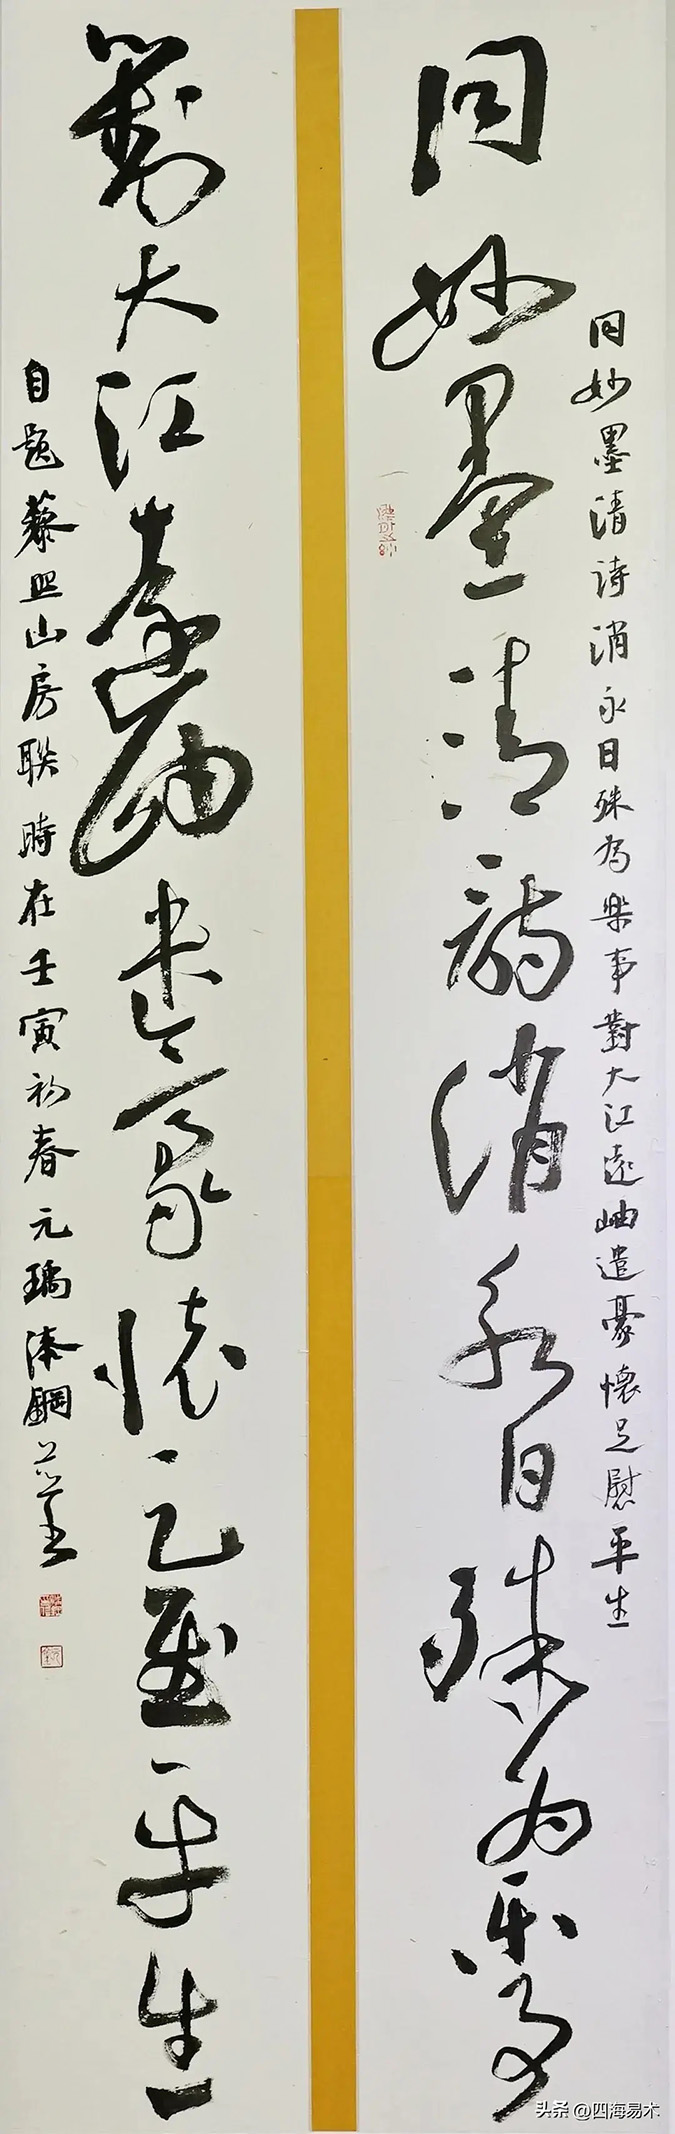 同妙墨清詩消永日殊為樂事
同妙墨清詩消永日殊為樂事對大江遠岫遣豪懷足慰平生
對大江遠岫遣豪懷足慰平生
自題藜照山房聯時在壬寅初春元瑀沐鋼並書
头条 @四海易木